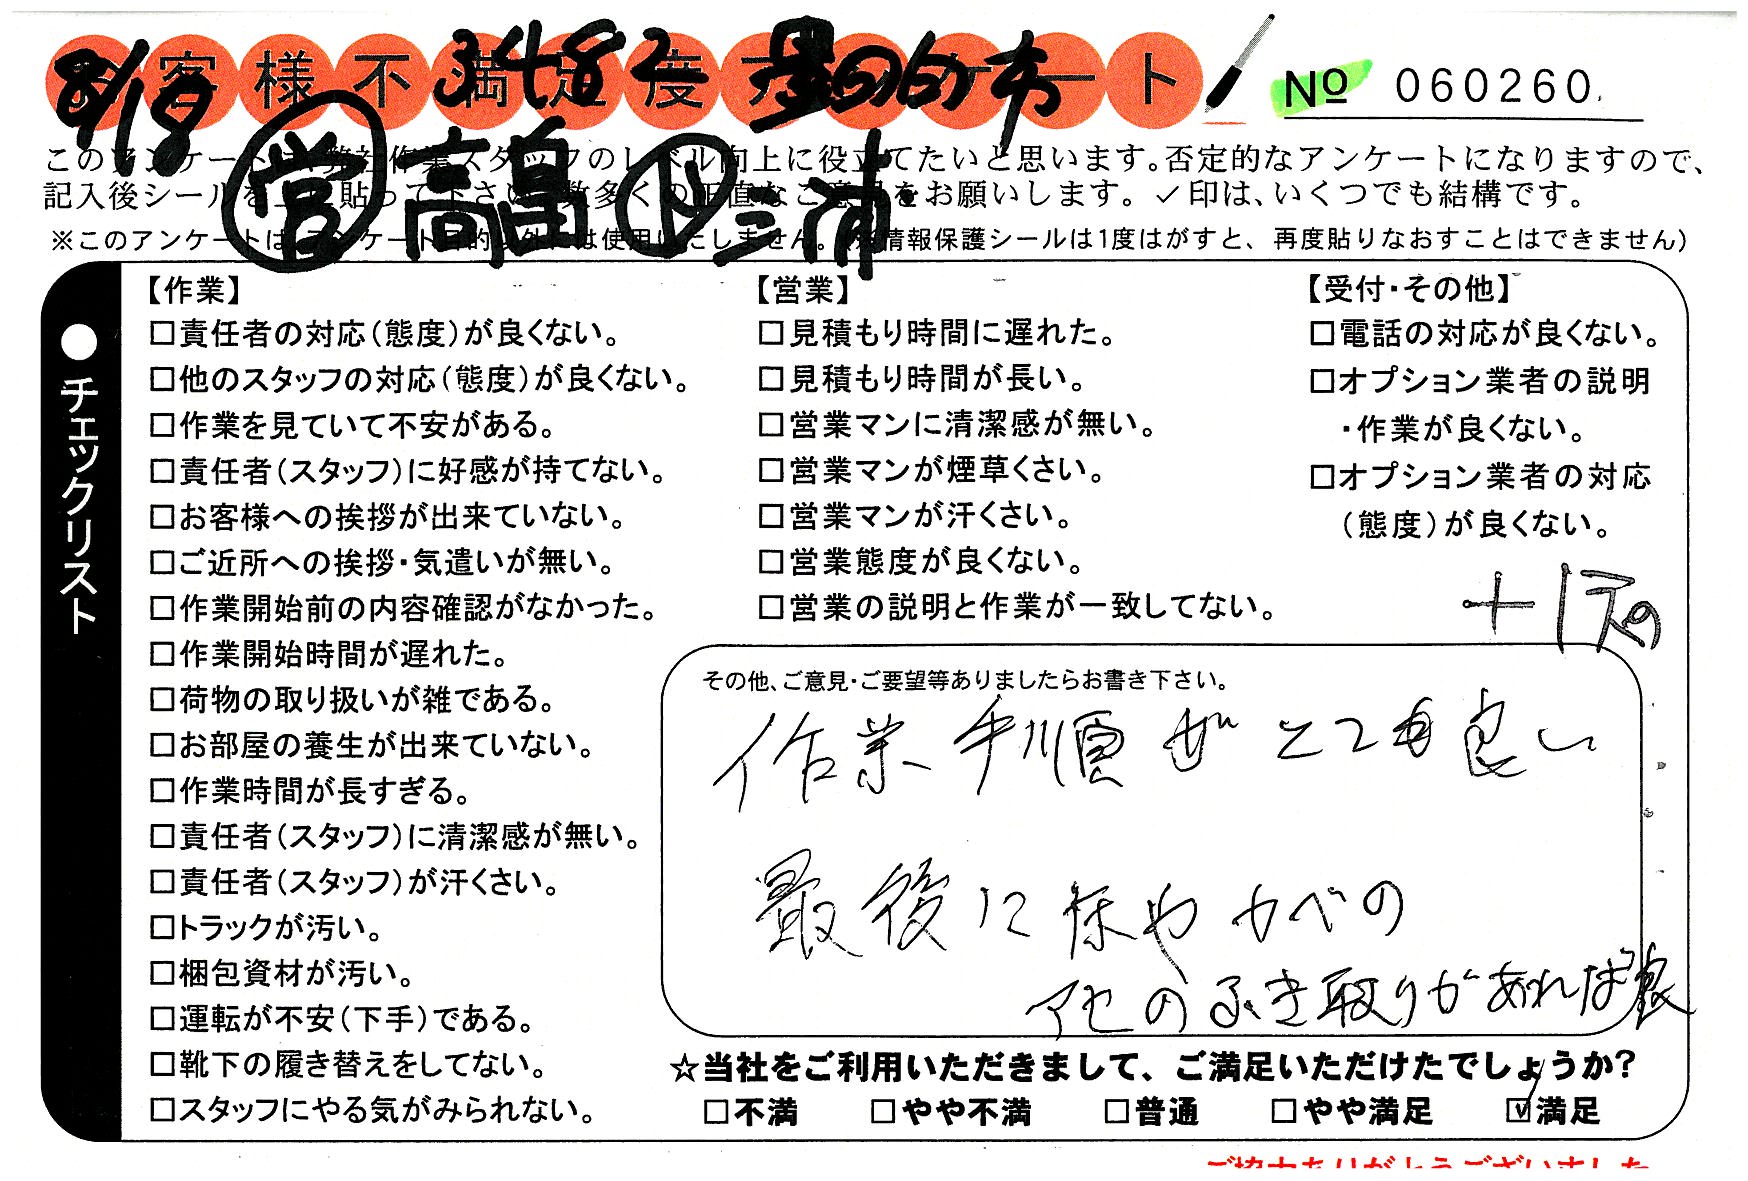 お客様不満足度アンケート
8/18 3482
No 060260
営 高畠 三浦
このアンケートは、弊社作業スタッフのレベル向上に役立てたいと思います。否定的なアンケートになりますので、
記入後シールを上に貼って下さい。数多くの正直なご意見をお願いします。✓印は、いくつでも結構です。
※このアンケートは、アンケート目的以外には使用いたしません。(※情報保護シールは1度はがすと、再度貼りなおすことはできません)
●チェックリスト
【作業】
□責任者の対応(態度)が良くない。
□他のスタッフの対応(態度)が良くない。
□作業を見ていて不安がある。
□責任者(スタッフ)に好感が持てない。
□お客様への挨拶が出来ていない。
□ご近所への挨拶・気遣いが無い。
□作業開始前の内容確認がなかった。
□作業開始時間が遅れた。
□荷物の取り扱いが雑である。
□お部屋の養生が出来ていない。
□作業時間が長すぎる。
□責任者(スタッフ)に清潔感が無い。
□責任者(スタッフ)が汗くさい。
□トラックが汚い。
□梱包資材が汚い。
□運転が不安(下手)である。
□靴下の履き替えをしてない。
□スタッフにやる気がみられない。
【営業】
□見積もり時間に遅れた。
□見積もり時間が長い。
□営業マンに清潔感が無い。
□営業マンが煙草くさい。
□営業マンが汗くさい。
□営業態度が良くない。
□営業の説明と作業が一致してない。
【受付・その他】
□電話の対応が良くない。
□オプション業者の説明
・作業が良くない。
□オプション業者の対応
(態度)が良くない。
その他、ご意見・ご要望等ありましたらお書き下さい。
作業手順がとても良い
最後に床やカベの
アセのふき取りがあれば良
☆当社をご利用いただきまして、ご満足いただけたでしょうか?
□不満 □やや不満 □普通 □やや満足 ☑満足
ご協力ありがとうございました